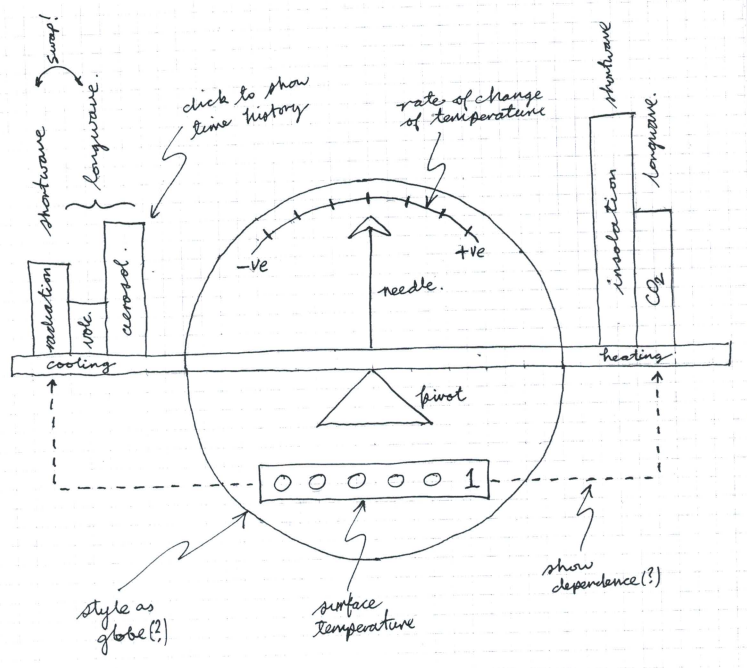 swap!
shortwave
longwave.
click to show
time history
rate of change
of temperature
shortwave
longwave.
-ve
+ve
needle.
radiation
volc.
aerosol.
insolation
CO2
cooling
heating
pivot
0 0 0 0 0 1
style as
globe(?)
surface
temperature
show
dependence(?)